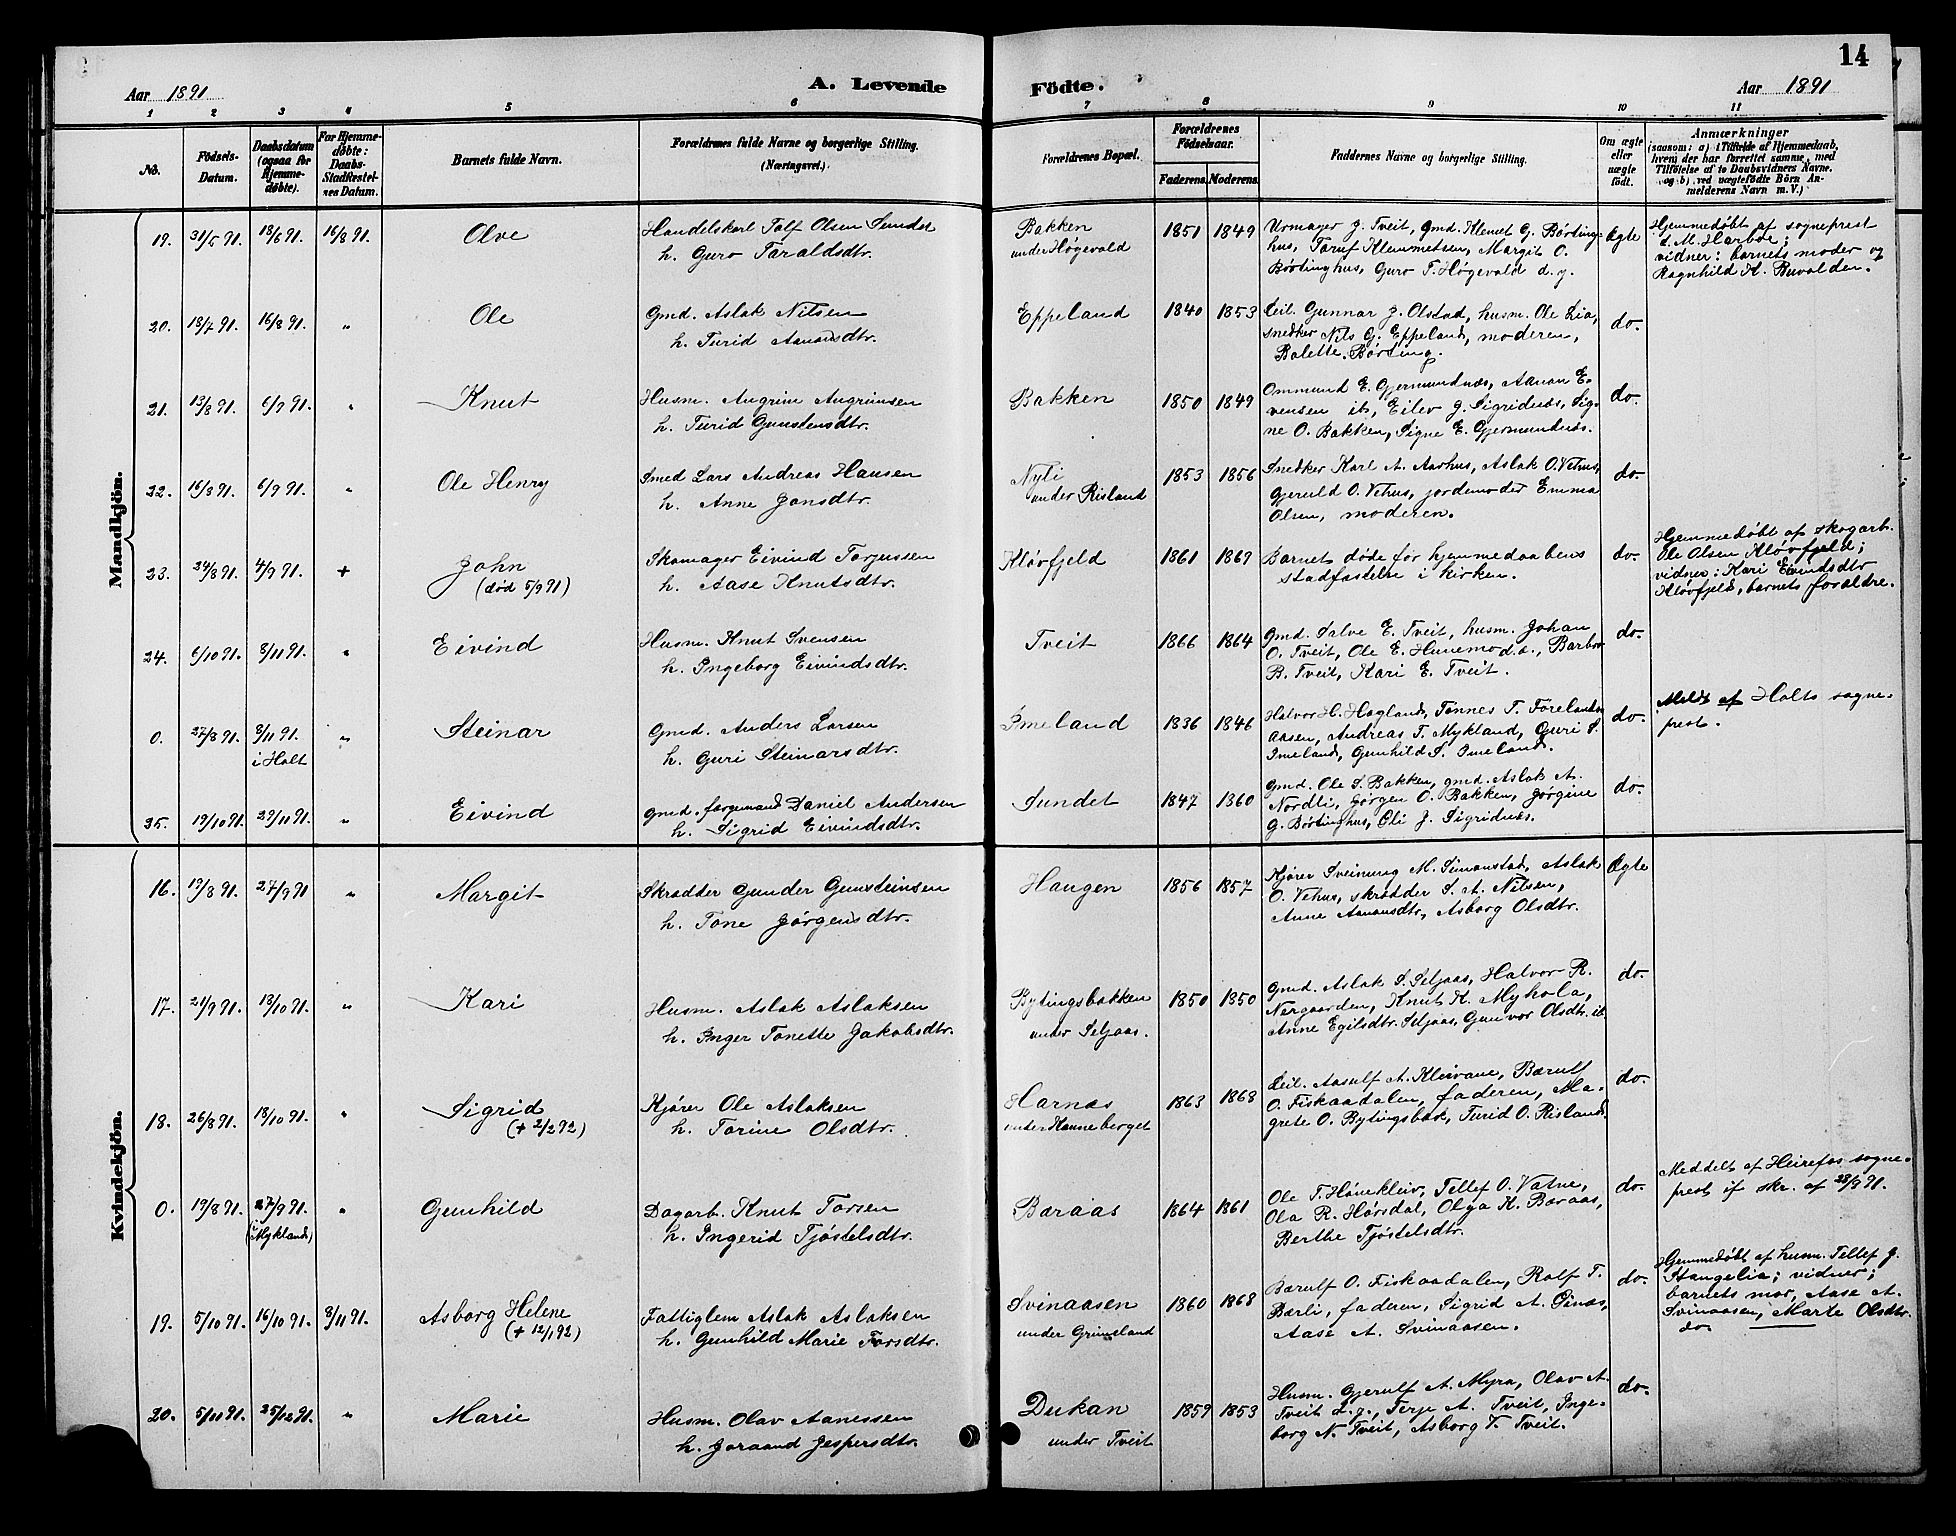 14
Aar 1891
A. Levende Födte.
Aar 1891
1 2 3 4 5 6 7 8 9 10 11
No.
Födsels-Datum.
Daabsdatum (ogsaa for Hjemmedöbte).
For Hjemmedöbte: Daabs-Stadfæstelsens Datum.
Barnets fulde Navn.
Forældrenes fulde Navne og borgerlige Stilling.
(Næringsvei.)
Forældrenes Bopæl.
Forældrenes Födselsaar.
Faderens. Moderens.
Faddernes Navne og borgerlige Stilling.
Om ægte eller uægte födt.
Anmærkninger
(saasom: a) i Tilfælde af Hjemmedaab, hvem der har forrettet samme, med Tilföielse af to Daabsvidners Navne, og b) ved uægtefödte Börn Anmelderens Navn m. V.)
Mandkjön.
19. 31/5 91. 18/6 91. 16/8 91. Olve
Handelskarl Talf Olsen Sundet
h. Guro Taraldsdtr.
Bakken
under Høgevold
1851 1849
Urmager J. Tveit, gmd. Klemet G. Børting-
hus, Taruf Klemmetsen, Margit O.
Børtinghus, Guro T. Høgevold d.y.
Ægte
Hjemmedøbt af sogneprest
d. M. Harboe;
vidner: barnets moder og
Ragnhild K. Buvolden.
20. 18/7 91. 16/8 91. " Ole
Gmd. Aslak Nilsen
h. Turid Aanonsdtr.
Eppeland
1840 1853
Leil. Gunnar J. Olstad, husm. Ole Lia,
snedker Nils G. Eppeland, moderen,
Bolette Børting.
do.
21. 13/8 91. 6/9 91. " Knut
Husm. Augrim Augrimsen
h. Turid Gunstensdtr.
Bakken
1850 1849
Ommund E. Gjermundnes, Aanon E-
vensen ib, Eilev J. Sigridnes, Sig-
ne O. Bakken, Signe E. Gjermundnes.
do.
22. 16/8 91. 6/9 91. " Ole Henry
Smed Lars Andreas Hansen
h. Anne Jonsdtr.
Nyli
under Risland
1853 1856
Snedker Karl A. Aarhus, Aslak O. Vehus,
Gjeruld O. Vehus, jordemoder Emma
Olsen, moderen.
do.
23. 24/8 91. 4/9 91. + John
(død 5/9 91)
Skomager Eivind Torjussen
h. Aase Knutsdtr.
Kløvfjeld
1861 1869
Barnet døde før hjemmedaabens
stadfæstelse i kirken.
do.
Hjemmedøbt af skogarb.
Ole Olsen Kløvfjeld;
vidner: Kari Eivindsdtr
Kløvfjeld, barnets forældre.
24. 6/10 91. 8/11 91. " Eivind
Husm. Knut Svensen
h. Ingeborg Eivindsdtr.
Tveit
1866 1864
Gmd. Salve E. Tveit, husm. Johan
O. Tveit, Ole E. Hunemo d.æ., Barbro
B. Tveit, Kari E. Tveit.
do.
0. 27/8 91. 8/11 91. i Holt " Steinar
Gmd. Anders Larsen
h. Guri Steinarsdtr.
Imeland
1836 1846
Halvor H. Hagland, Tønnes T. Forelands-
aasen, Andreas T. Mykland, Guri S.
Imeland, Gunhild S. Imeland.
do.
Meldt af Holts sogne-
prest.
25. 19/10 91. 29/11 91. " Eivind
Gmd. færgemand Daniel Andersen
h. Sigrid Eivindsdtr.
Sundet
1847 1860
Gmd. Ole S. Bakken, gmd. Aslak A.
Nordli, Jørgen O. Bakken, Jørgine
G. Børtinghus, Oli J. Sigridnes.
do.
Kvindekjön.
16. 19/8 91. 27/9 91 " Margit
Skrædder Gunder Gunsteinsen
h. Tone Jørgensdtr.
Haugen
1856 1857
Kjører Sveinung M. Simonstad, Aslak
O. Vehus, skrædder S. A. Nilsen,
Anne Aanonsdtr, Asborg Olsdtr.
Ægte
17. 21/9 91. 18/10 91. " Kari
Husm. Aslak Aslaksen
h. Inger Tonette Jakobsdtr.
Bytingsbakken
under Seljaas.
1850 1850
Gmd. Aslak S. Seljaas, Halvor R.
Nergaarden, Knut K. Myhola,
Anne Egilsdtr. Seljaas, Gunvor Olsdtr. ib
do.
18. 26/8 91. 18/10 91. " Sigrid
(+ 2/2 92)
Kjører Ole Aslaksen
h. Torine Olsdtr.
Harnæs
under Hanneberget
1863 1868
Leil. Aasulf A. Kleivane, Bærulf
O. Fiskaadalen, faderen, Ma-
grete O. Bytingsbak, Turid O. Risland.
do.
0. 19/8 91. 27/9 91. (i Mykland) " Gunhild
Dagarb. Knut Torsen
h. Ingerid Tjøstelsdtr.
Baraas
1864 1861
Ole T. Hønekleiv, Tellef O. Vatne,
Ola R. Hørsdal, Olga K. Baraas,
Berthe Tjøstelsdtr.
do.
Meddelt af Heirefos sogne-
prest if skr. af 28/9 91.
19. 5/10 91. 16/10 91. 8/11 91. Asborg Helene
(+ 12/1 92)
Fattiglem Aslak Aslaksen
h. Gunhild Marie Torsdtr.
Svinaasen
under Grimsland
1860 1868
Bærulf O. Fiskaadalen, Rolf T.
Bærli, faderen, Sigrid A. Senæs,
Aase A. Svinaasen.
do.
Hjemmedøbt af husm. Tellef J.
Stangelia; vidner;
barnets mor, Aase A.
Svinaasen, Marte Olsdtr.
do.
20. 5/11 91. 25/12 91. " Marie
Husm. Olav Aanessen
h. Joraand Jespersdtr.
Dukan
under Tveit
1859 1853
Husm. Gjerulf A. Myra, Olav A.
Tveit d.y., Terje A. Tveit, Inge-
borg N. Tveit, Asborg T. Tveit.
do.